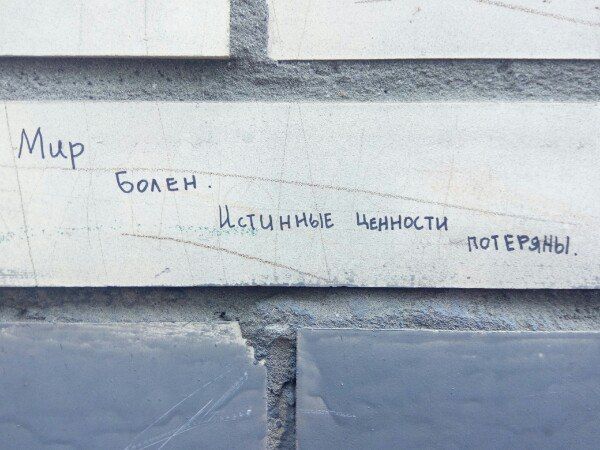 Мир
болен.
Истинные ценности
потеряны.